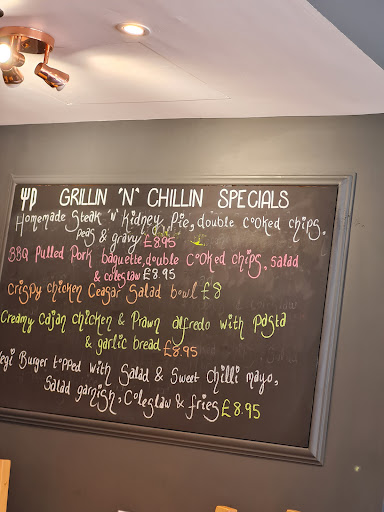 GRILLIN 'N' CHILLIN SPECIALS
Homemade Steak 'N' Kidney Pie, double cooked chips,
peas & gravy £8.95
BBQ Pulled Pork baguette, double cooked chips, salad
& coleslaw £8.95
Crispy chicken Ceasar Salad bowl £8
Creamy Cajan chicken & Prawn alfredo with pasta
& garlic bread £8.95
Vegi Burger topped with Salad & Sweet Chilli mayo,
Salad garnish, Coleslaw & fries £8.95